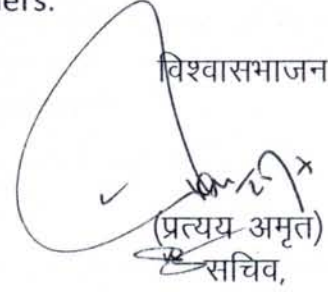 ers.
विश्वासभाजन
(प्रत्यय अमृत)
सचिव,